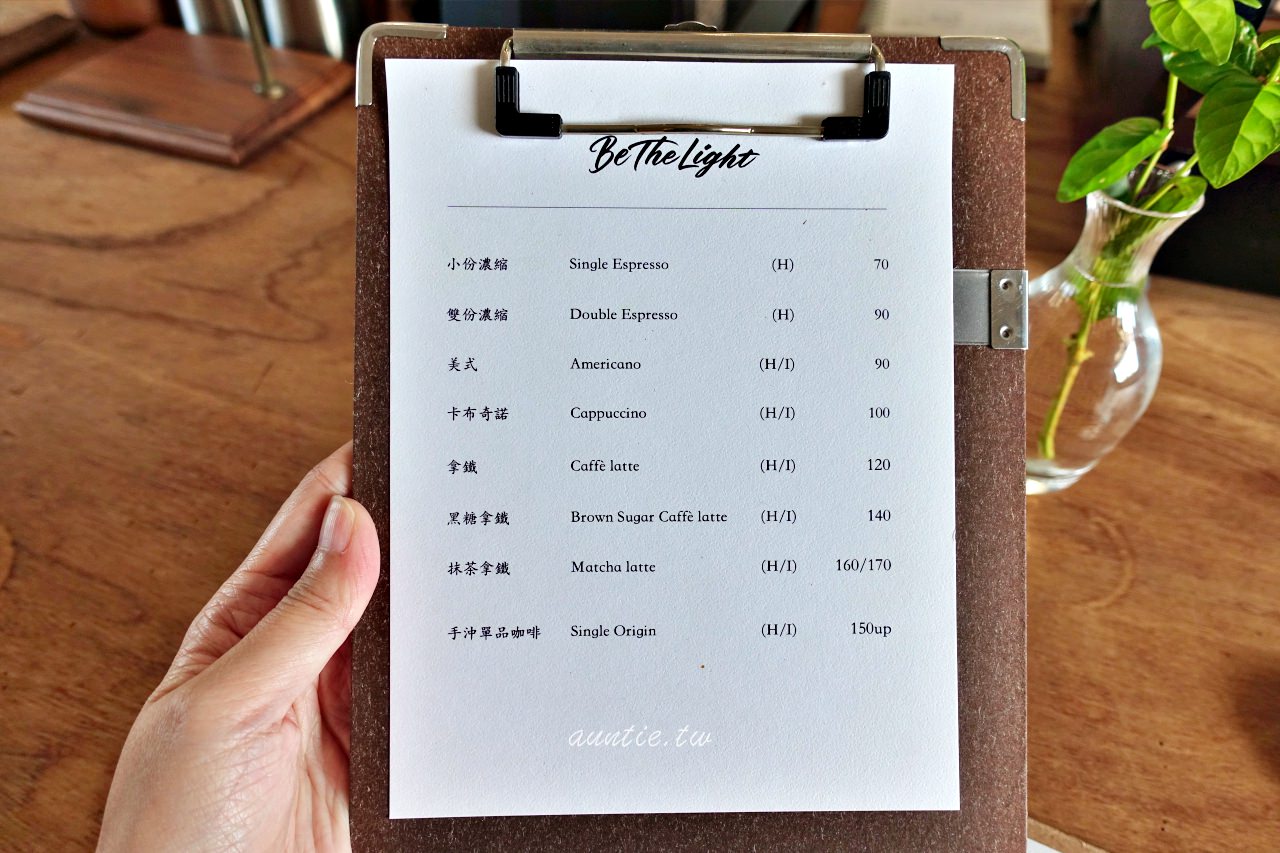 Be The Light
小份濃縮 Single Espresso (H) 70
雙份濃縮 Double Espresso (H) 90
美式 Americano (H/I) 90
卡布奇諾 Cappuccino (H/I) 100
拿鐵 Caffè latte (H/I) 120
黑糖拿鐵 Brown Sugar Caffè latte (H/I) 140
抹茶拿鐵 Matcha latte (H/I) 160/170
手沖單品咖啡 Single Origin (H/I) 150up
auntie.tw